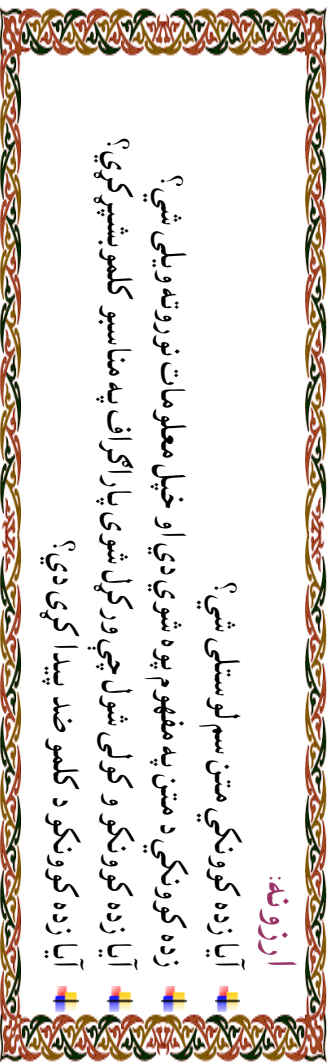 ارزونه:
آیا زده کوونکي متن سم لوستلی شي؟
زده کوونکي د متن په مفهوم پوه شوي دي او خپل معلومات نوروته ویلی شي؟
آیا زده کوونکو و کولی شول چې ورکړل شوی پاراګراف په مناسبو کلمو بشپړ کړي؟
آیا زده کوونکو د کلمو ضد پیدا کړی دي؟